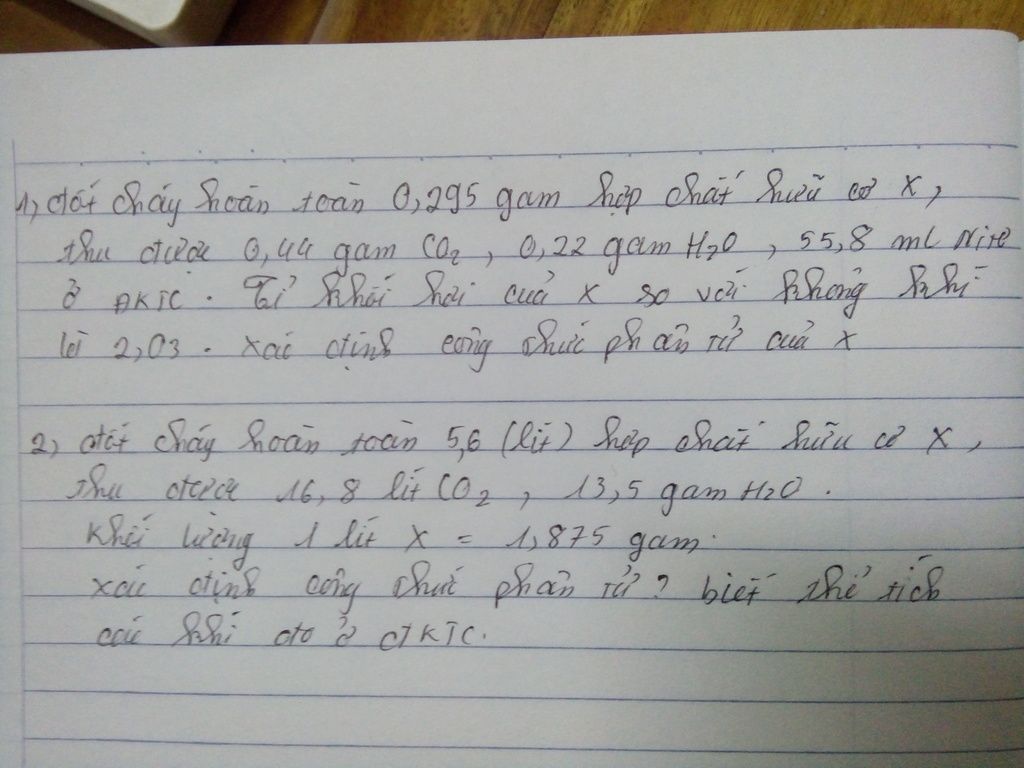 1, đốt cháy hoàn toàn 0,295 gam hợp chất hữu cơ X,
thu được 0,44 gam CO2, 0,22 gam H2O, 55,8 ml Nitơ
ở ĐKTC. Tỉ khối hơi của X so với không khí
là 2,03. Xác định công thức phân tử của X
2, đốt cháy hoàn toàn 5,6 (lít) hợp chất hữu cơ X,
thu được 16,8 lít CO2, 13,5 gam H2O.
Khối lượng 1 lít X = 1,875 gam.
Xác định công thức phân tử? biết thể tích
các khí đo ở ĐKTC.